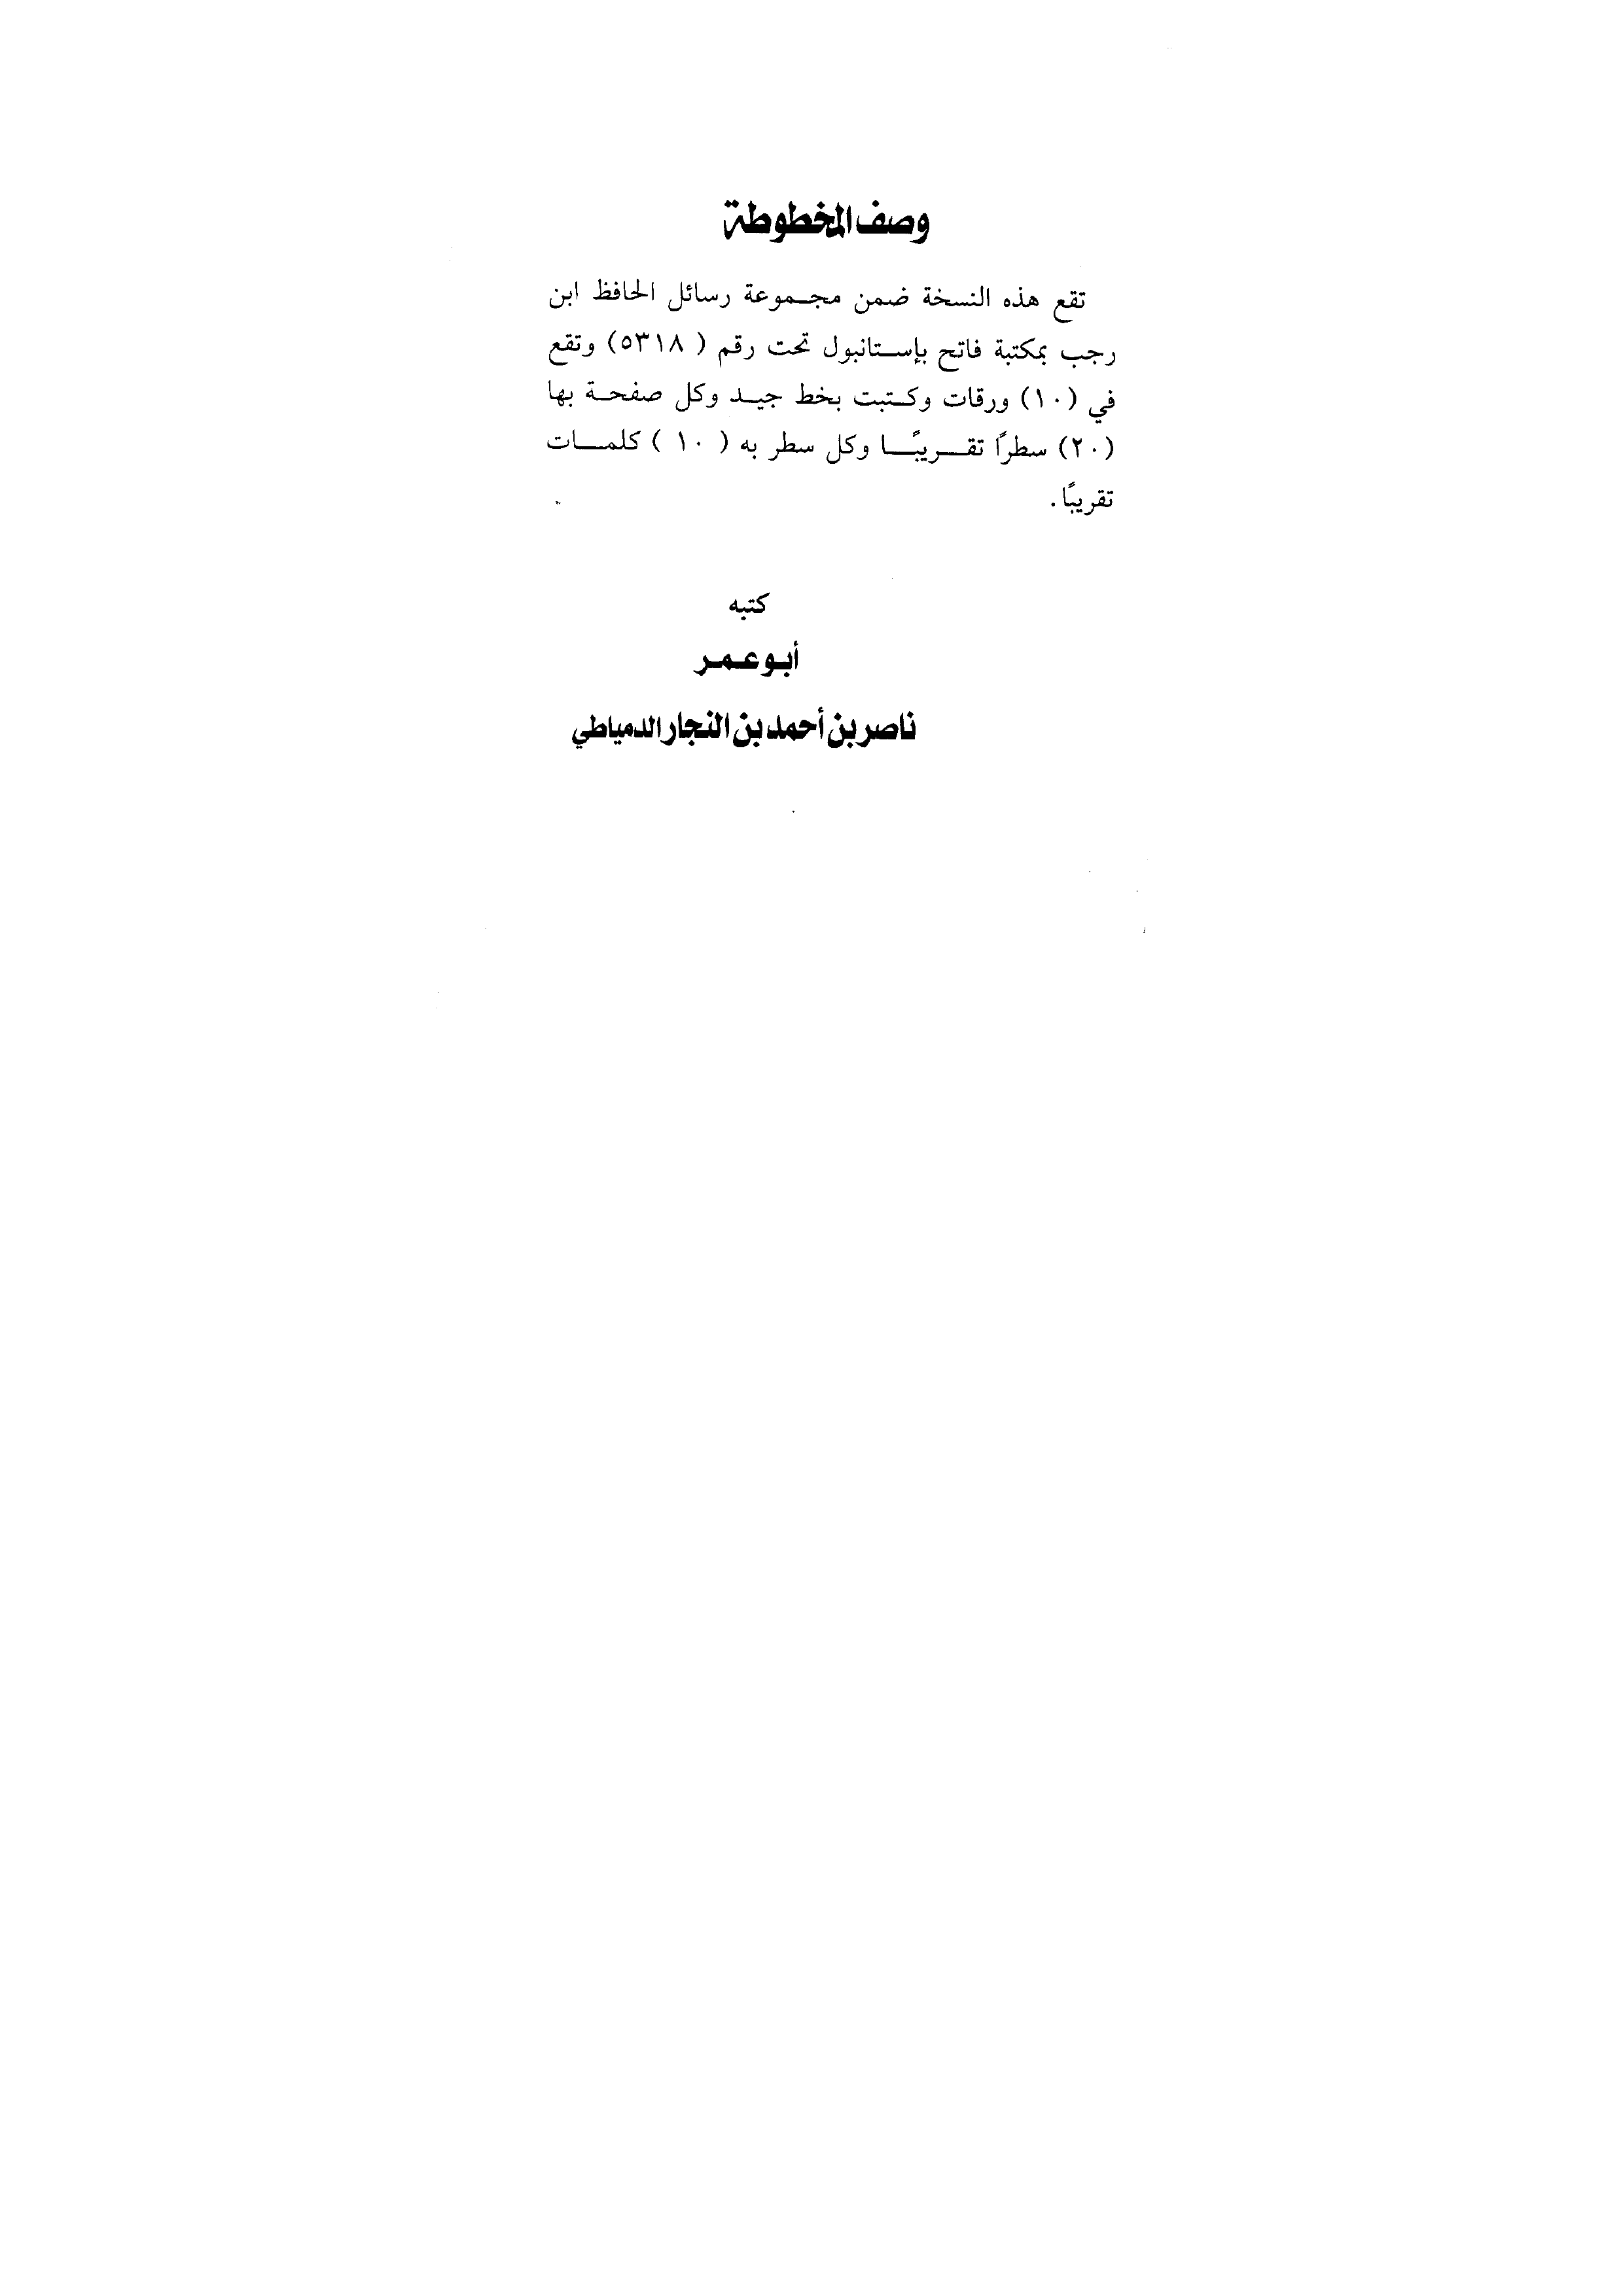 وصف المخطوطة
تقع هذه النسخة ضمن مجموعة رسائل الحافظ ابن
رجب بمكتبة فاتح بإستانبول تحت رقم ( ٥٣١٨) وتقع
في (١٠) ورقات وكتبت بخط جيد وكل صفحة بها
(٢٠) سطرًا تقريبًا وكل سطر به ( ١٠ ) كلمات
تقريبًا.
كتبه
أبو عمر
ناصر بن أحمد بن النجار الدمياطي